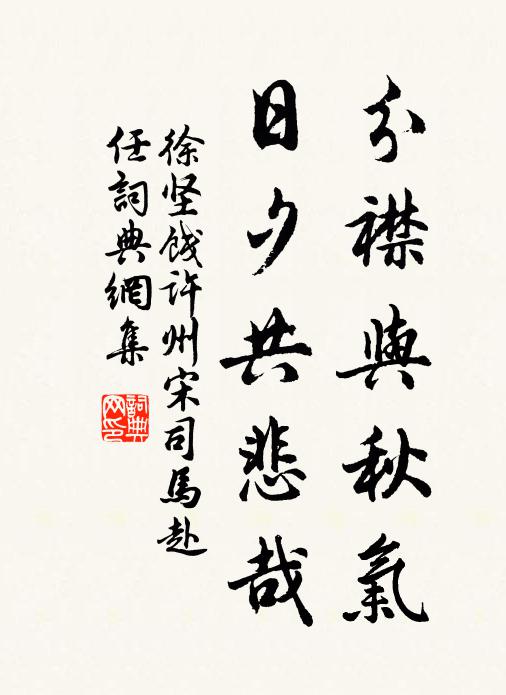 分襟與秋氣
日夕共悲哉
徐坚餞许州宋司馬赴
任詞典網集
詞典
网印